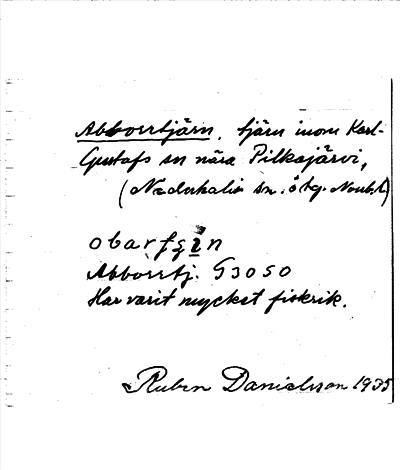 Abborrtjärn, tjärn inom Karl-
Gustafs sn nära Pilkajärvi,
(Nederkalix sn. o tg. Norrb.l)
obarfʂin
Abborrtj. G3050
Har varit mycket fiskrik.
Ruben Danielsson 1935